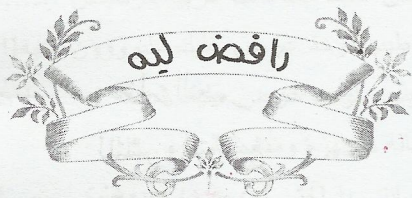 رافض ليه